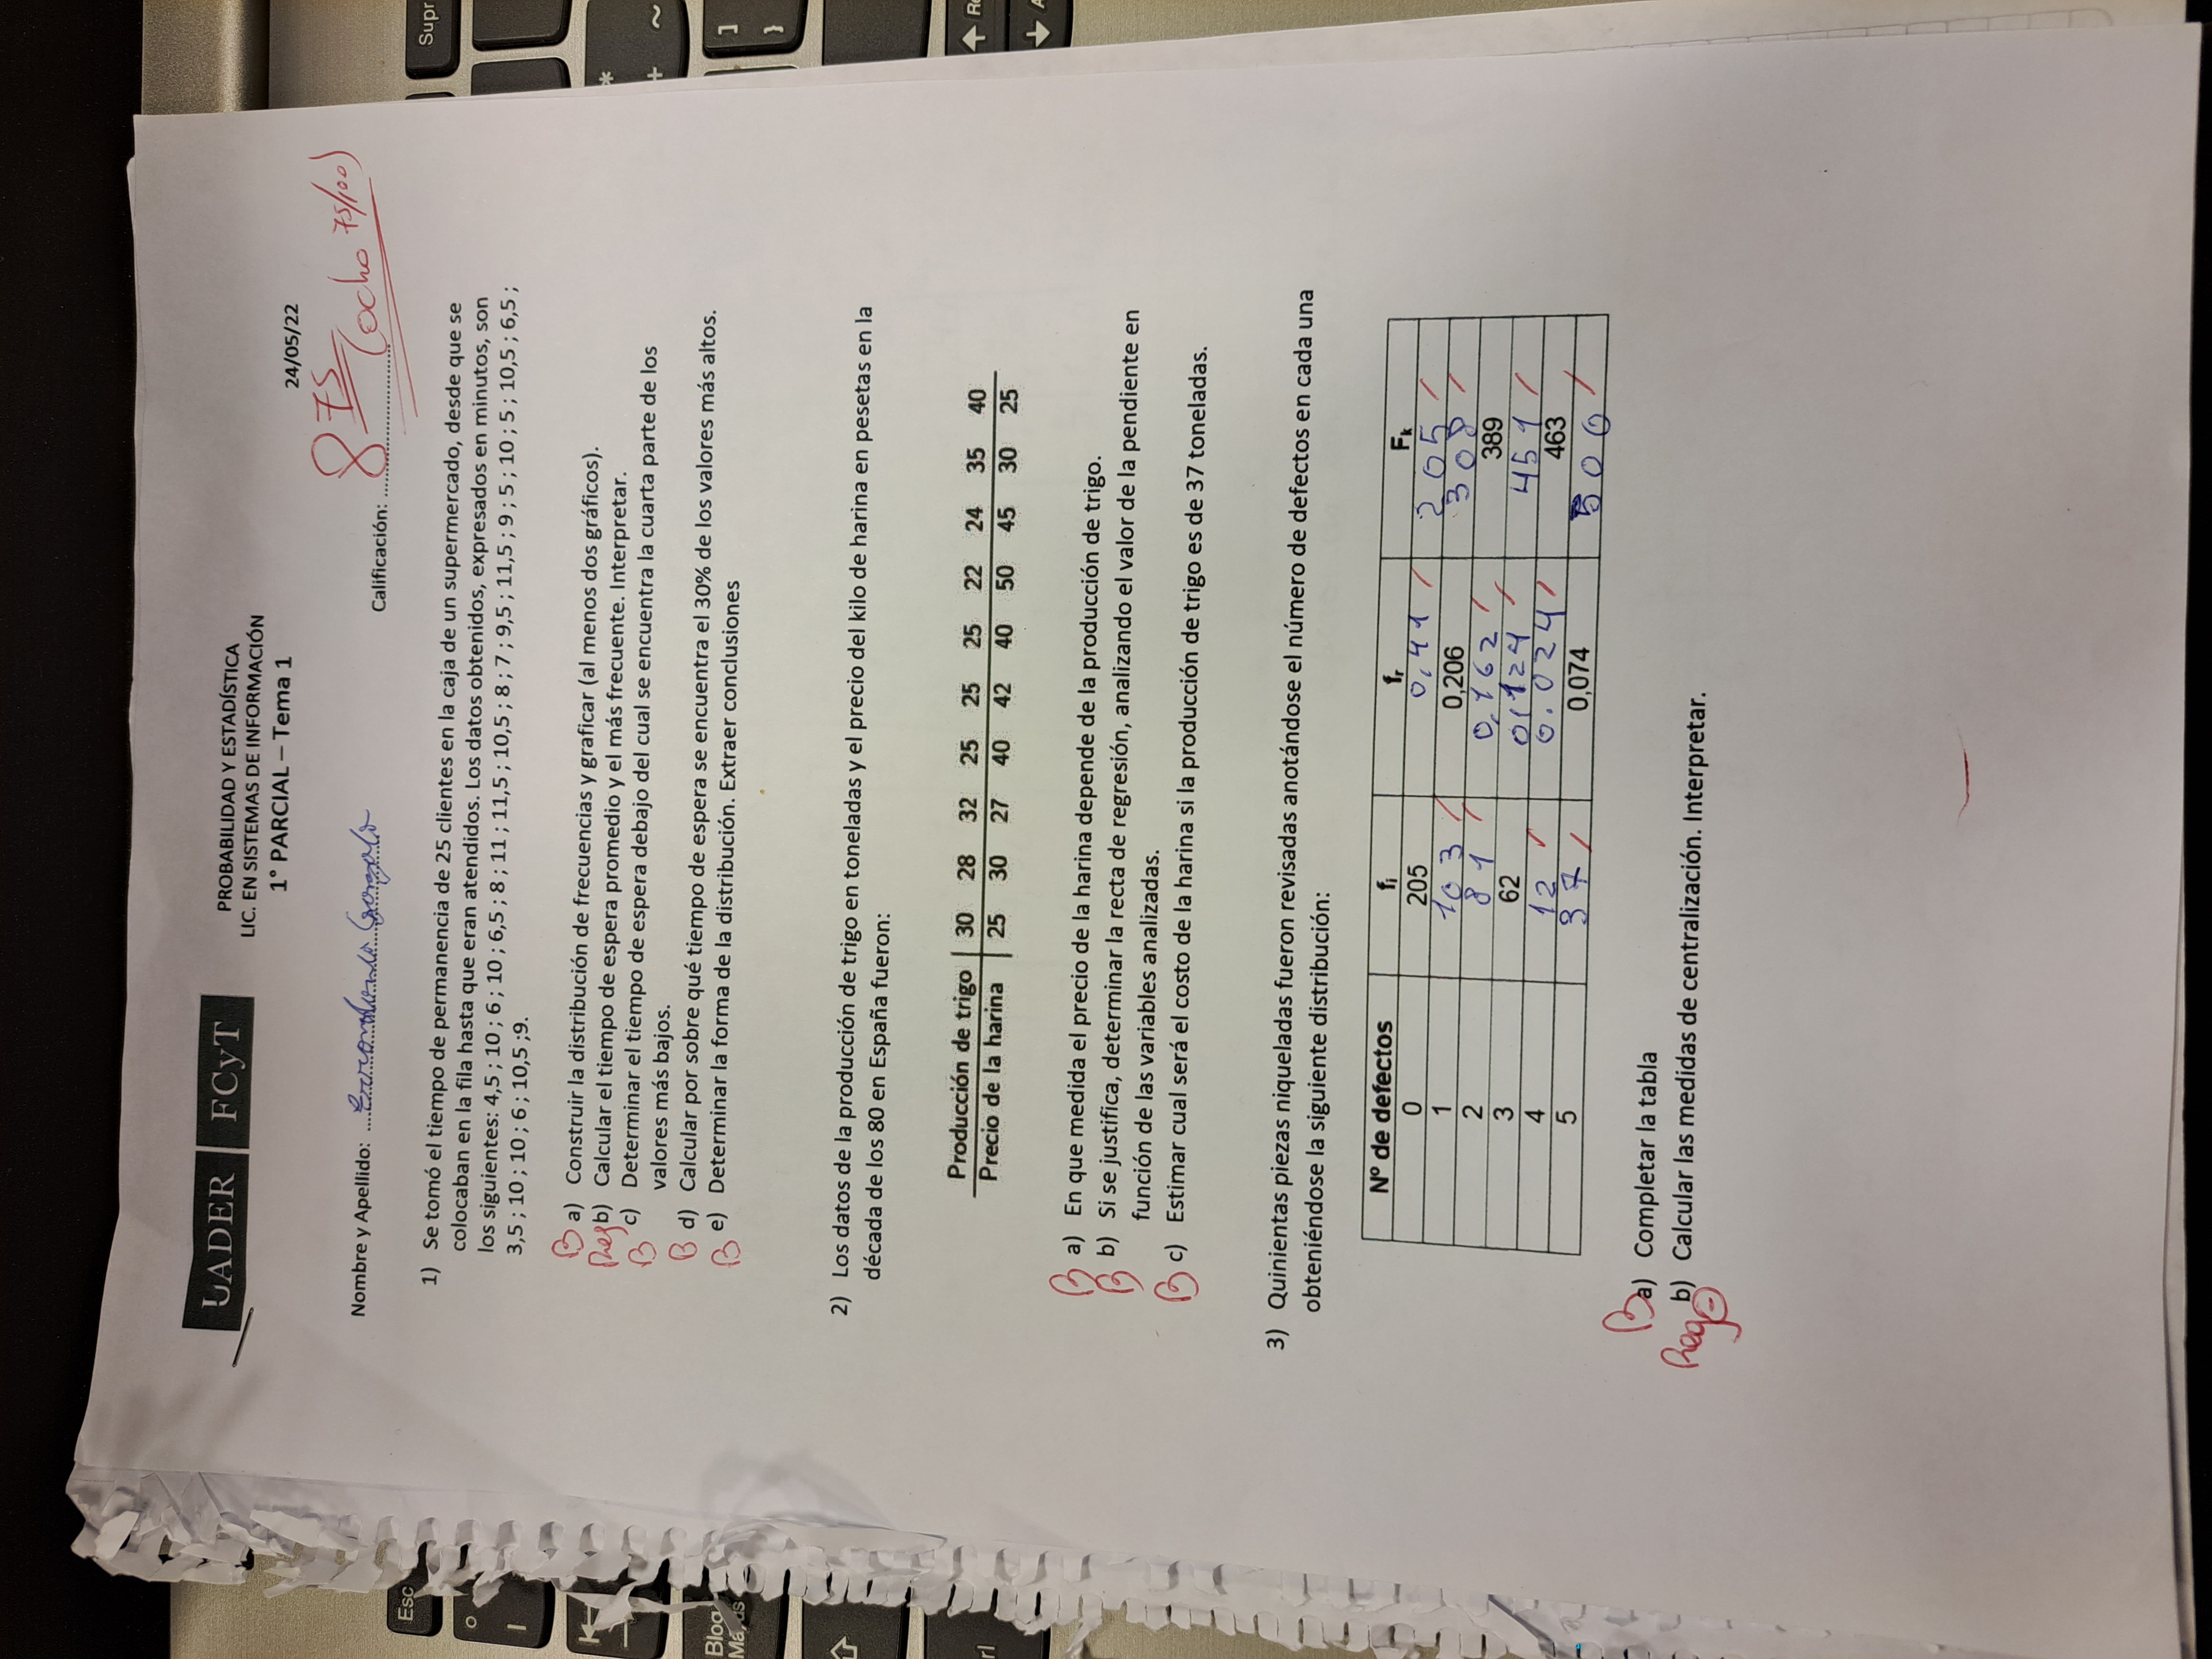 UADER FCyT
PROBABILIDAD Y ESTADÍSTICA
LIC. EN SISTEMAS DE INFORMACIÓN
1° PARCIAL – Tema 1
24/05/22
Nombre y Apellido: Gonzalo
Calificación: 8 75 (ocho 75/100)
1) Se tomó el tiempo de permanencia de 25 clientes en la caja de un supermercado, desde que se
colocaban en la fila hasta que eran atendidos. Los datos obtenidos, expresados en minutos, son
los siguientes: 4,5 ; 10 ; 6 ; 10 ; 6,5 ; 8 ; 11 ; 11,5 ; 10,5 ; 8 ; 7 ; 9,5 ; 11,5 ; 9 ; 5 ; 10 ; 5 ; 10,5 ; 6,5 ;
3,5 ; 10 ; 10 ; 6 ; 10,5 ;9.
B a) Construir la distribución de frecuencias y graficar (al menos dos gráficos).
Reg b) Calcular el tiempo de espera promedio y el más frecuente. Interpretar.
B c) Determinar el tiempo de espera debajo del cual se encuentra la cuarta parte de los
valores más bajos.
B d) Calcular por sobre qué tiempo de espera se encuentra el 30% de los valores más altos.
B e) Determinar la forma de la distribución. Extraer conclusiones
2) Los datos de la producción de trigo en toneladas y el precio del kilo de harina en pesetas en la
década de los 80 en España fueron:
Producción de trigo 30 28 32 25 25 25 22 24 35 40
Precio de la harina 25 30 27 40 42 40 50 45 30 25
B a) En que medida el precio de la harina depende de la producción de trigo.
B b) Si se justifica, determinar la recta de regresión, analizando el valor de la pendiente en
función de las variables analizadas.
B c) Estimar cual será el costo de la harina si la producción de trigo es de 37 toneladas.
3) Quinientas piezas niqueladas fueron revisadas anotándose el número de defectos en cada una
obteniéndose la siguiente distribución:
Nº de defectos fi fr Fk
0 205 0,41 205
1 103 0,206 308
2 81 0,162 389
3 62 0,124 451
4 12 0.024 463
5 37 0,074 500
B a) Completar la tabla
Reg - b) Calcular las medidas de centralización. Interpretar.
Esc
Supr
Bloq
Mayús